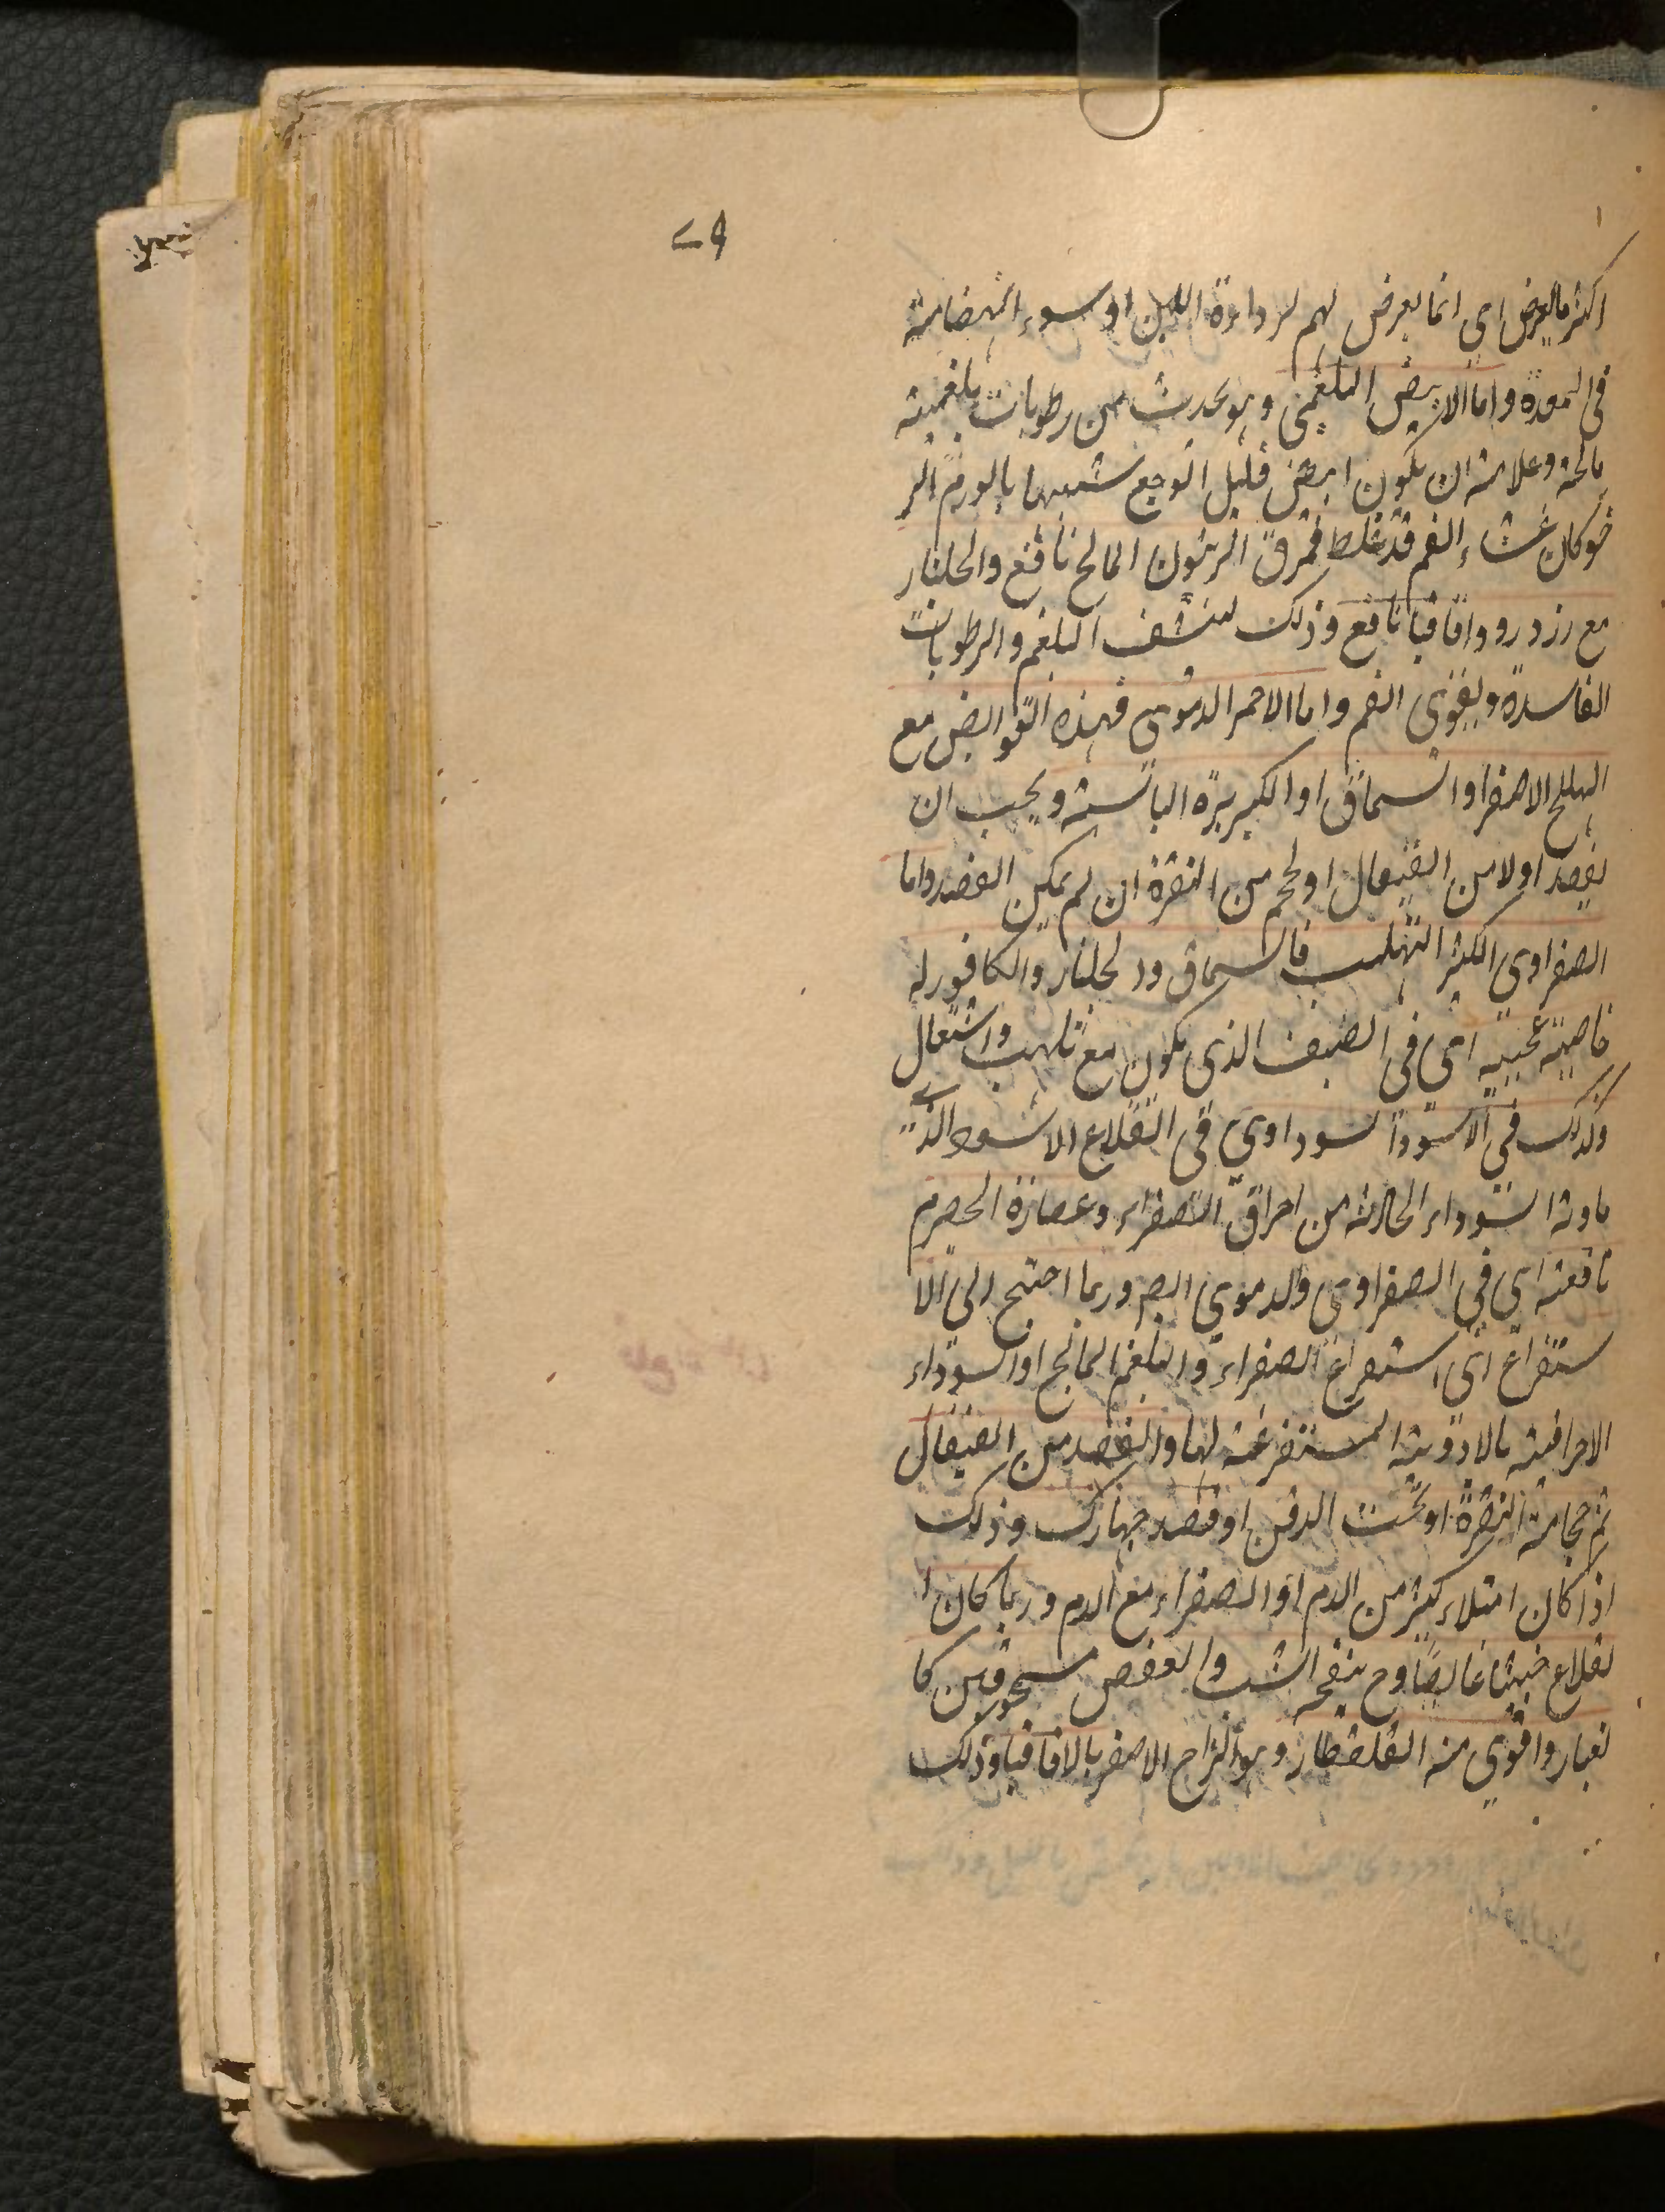 اكثر ما يعرض اي انما يعرض لهم لرداءة اللبن او سوء انهضامه
فى المعدة واما الابيض البلغمى وهو يحدث من رطوبات بلغمية
مالحة وعلامته ان يكون ابيض قليل الوجع شبيها بالورم الر
خو كان غشاء الفم قد غلظ فمرق الزيتون المالح نافع والجلنار
مع زرد رو واقاقيا نافع وذلك لتنشف البلغم والرطوبات
الفاسدة ويقوى الفم واما الاحمر الدموى فهذه القوابض مع
الهليلج الاصفر او السماق او الكزبرة اليابسة ويجب ان
يفصد اولا من القيفال او يحجم من النقرة ان لم يمكن الفصد واما
الصفراوى الكثير التهلب فالسماق ود لجلنار والكافور له
خاصية عجيبة اي فى الصيف الذى يكون مع تلهب واشتعال
وكذلك فى الاسود السوداوي فى القلاع الاسود الذي
مادته السوداء الحادثة من احراق الصفراء وعصارة الحصرم
نافعته اي فى الصفراوى والدموى ايضا وربما احتيج الى الا
ستفراغ اى استفراغ الصفراء والبلغم المالح او السوداء
الاحراقية بالادوية المستفرغة لها والفصد من القيفال
ثم حجامة النقرة او تحت الذقن او فصد جهارك وذلك
اذا كان امتلاء كثير من الدم او الصفراء مع الدم وربما كان ا
لقلاع خبيثا غايصا وح ينفعه الشب والعفص مسحوقين كا
لغبار واقوى منه القلقطار وهو الزاج الاصفر بالاقاقيا وذلك